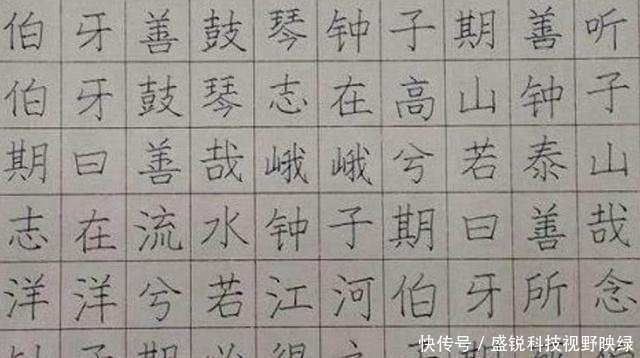 伯牙善鼓琴钟子期善听
伯牙鼓琴志在高山钟子
期曰善哉峨峨兮若泰山
志在流水钟子期曰善哉
洋洋兮若江河伯牙所念
快传号／盛锐科技视野映绿